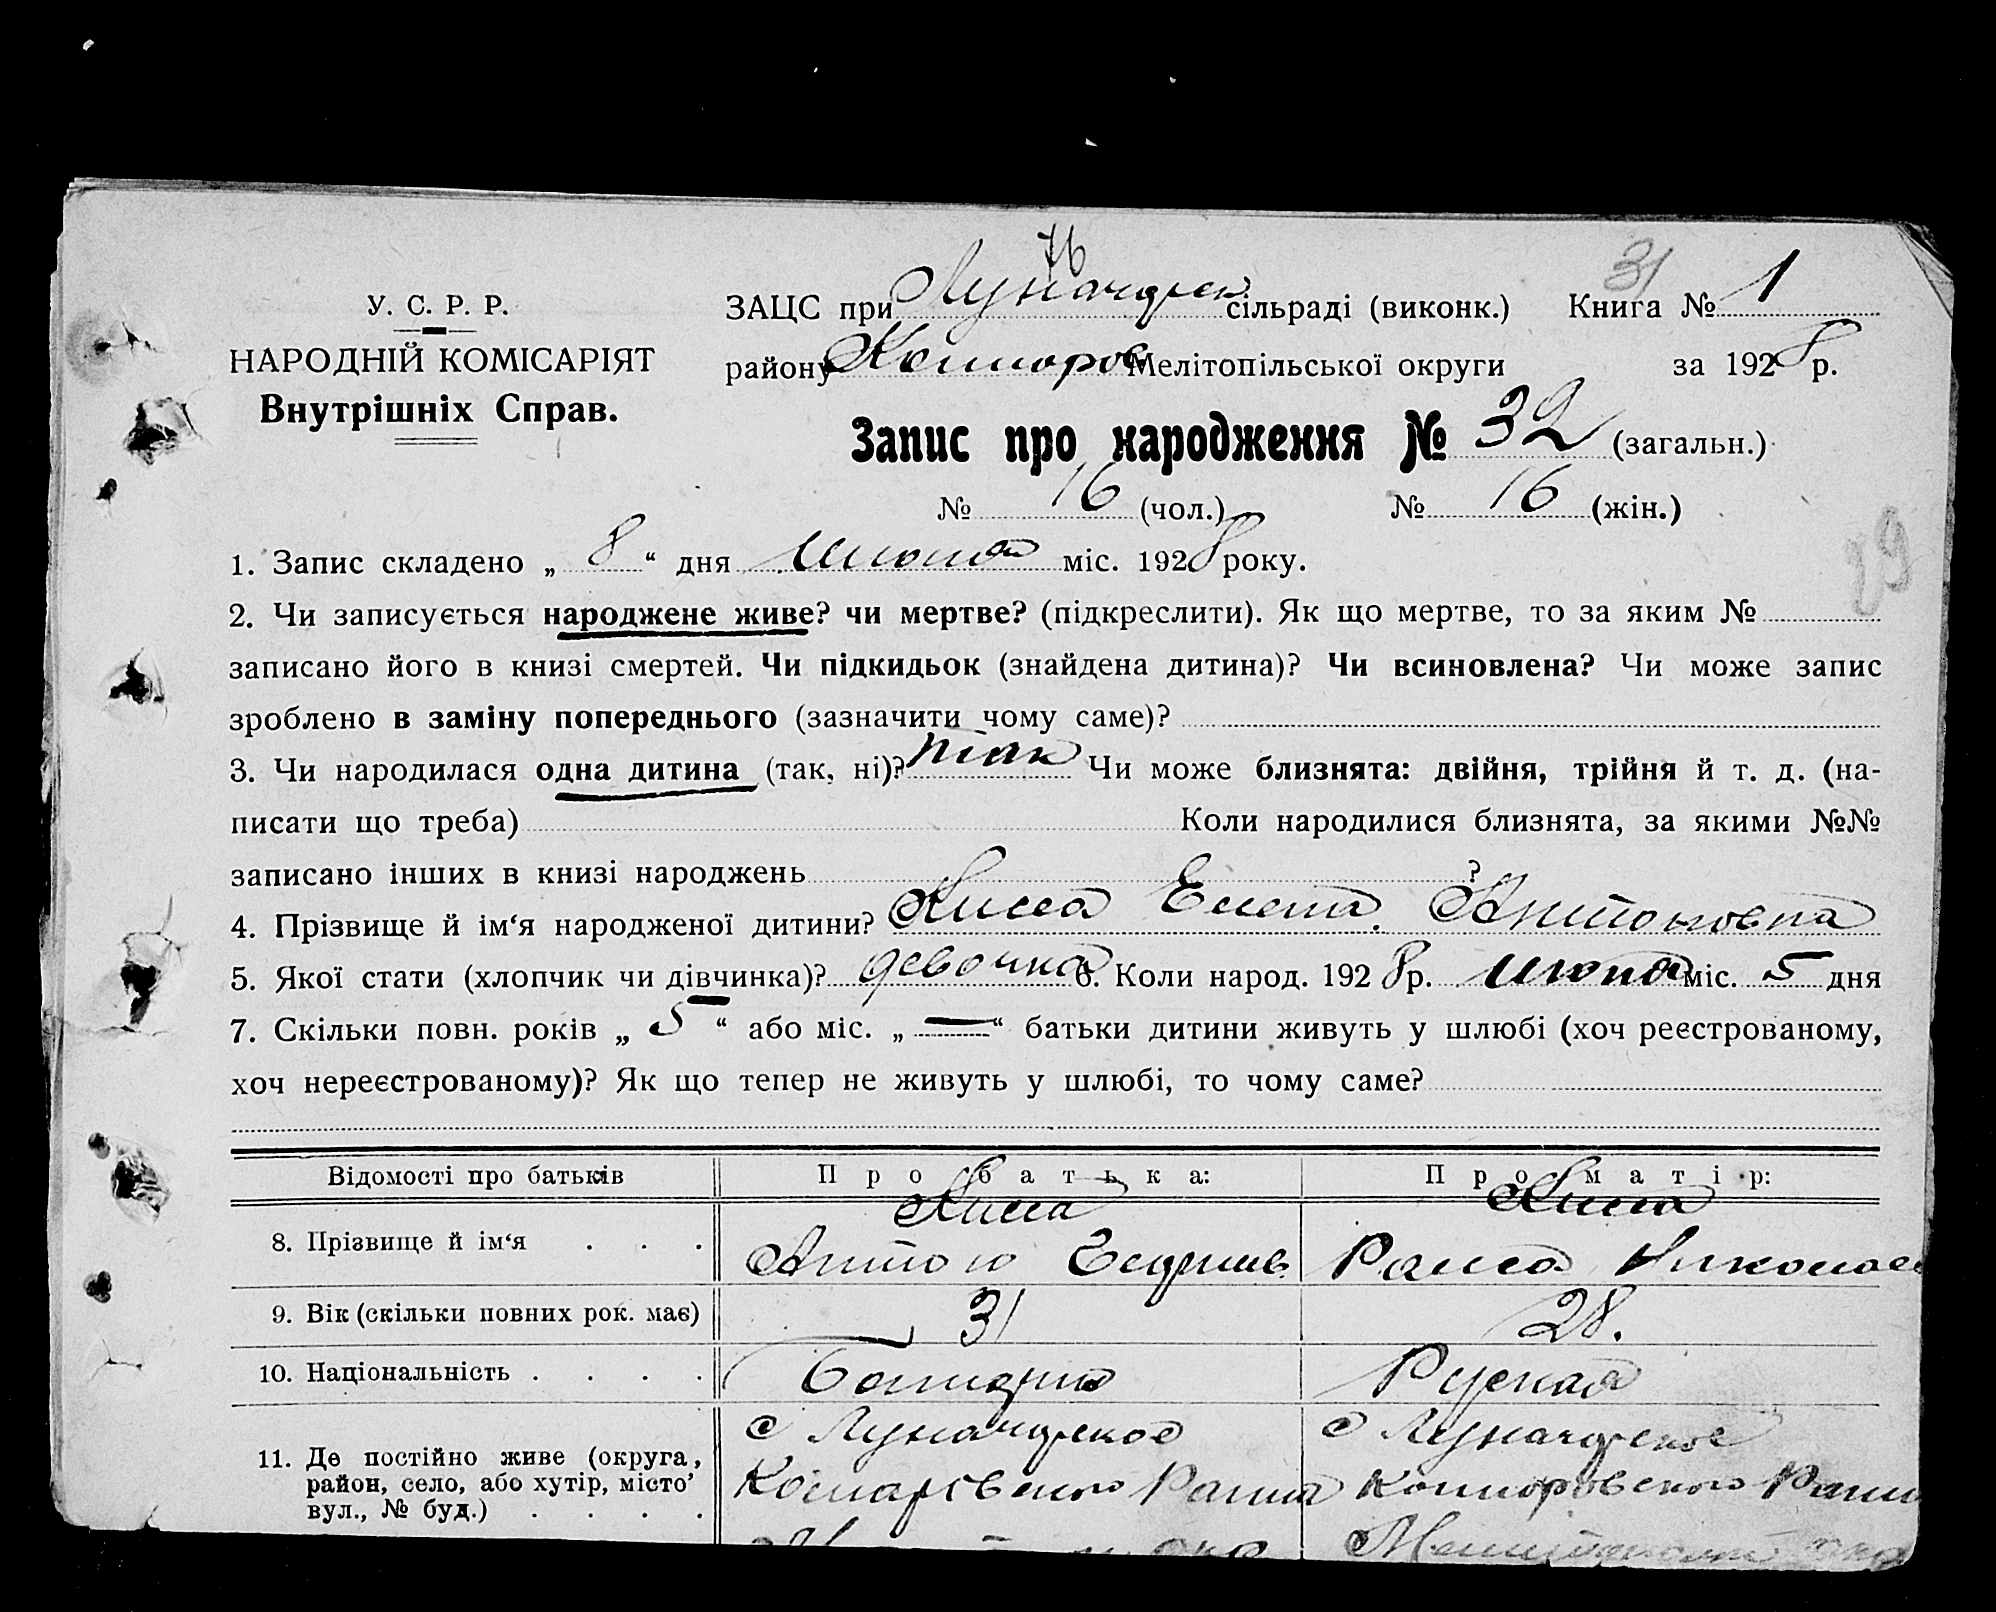 76
31
У. С. Р. Р.
НАРОДНІЙ КОМІСАРІЯТ
Внутрішніх Справ.
ЗАЦС при Луначарск сільраді (виконк.) Книга № 1
району Коларов Мелітопільської округи за 1928 р.
Запис про народження № 32 (загальн.)
№ 16 (чол.) № 16 (жін.)
29
1. Запис складено „ 8 “ дня июля міс. 1928 року.
2. Чи записується народжене живе? чи мертве? (підкреслити). Як що мертве, то за яким №
записано його в книзі смертей. Чи підкидьок (знайдена дитина)? Чи всиновлена? Чи може запис
зроблено в заміну попереднього (зазначити чому саме)?
3. Чи народилася одна дитина (так, ні)? так Чи може близнята: двійня, трійня й т. д. (на-
писати що треба) Коли народилися близнята, за якими №№
записано інших в книзі народжень ?
4. Прізвище й ім‘я народженої дитини? Елена Антоновна
5. Якої стати (хлопчик чи дівчинка)? девочка 6. Коли народ. 1928 р. міс. 5 дня
7. Скільки повн. років „ 5 “ або міс. „ — “ батьки дитини живуть у шлюбі (хоч реєстрованому,
хоч нереєстрованому)? Як що тепер не живуть у шлюбі, то чому саме?
Відомості про батьків Про батька: Про матір:
8. Прізвище й ім‘я . . . Антон Раиса Николае
9. Вік (скільки повних рок. має) 31 28.
10. Національність . . . . Болгарин Руская
11. Де постійно живе (округа, с Луначарское с Луначарское
район, село, або хутір, місто’ Коларовского Раина Коларовского Раин
вул., № буд.) . . . .